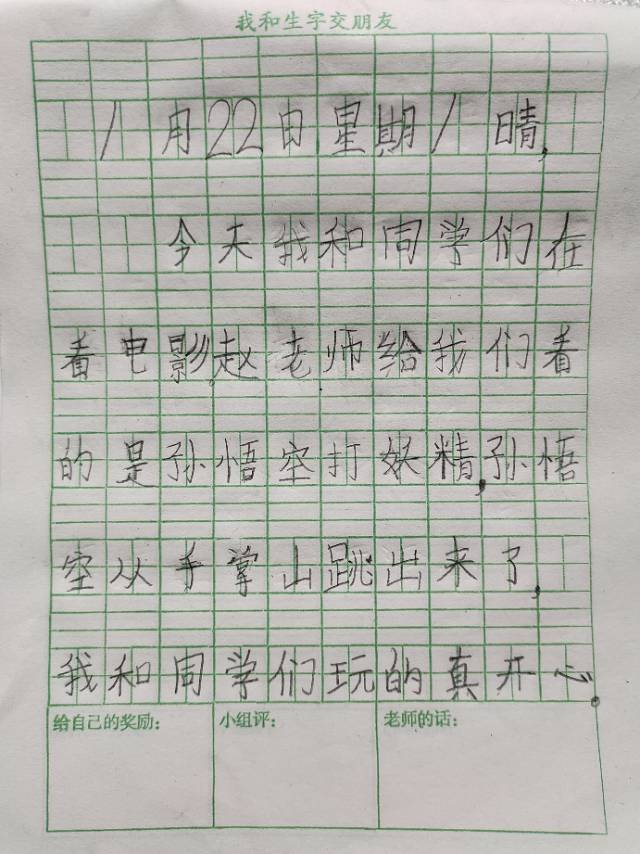 我和生字交朋友
1月22日星期1晴,
今天我和同学们在
看电影,赵老师给我们看
的是孙悟空打妖精,孙悟
空从手掌山跳出来了,
我和同学们玩的真开心。
给自己的奖励:
小组评:
老师的话: